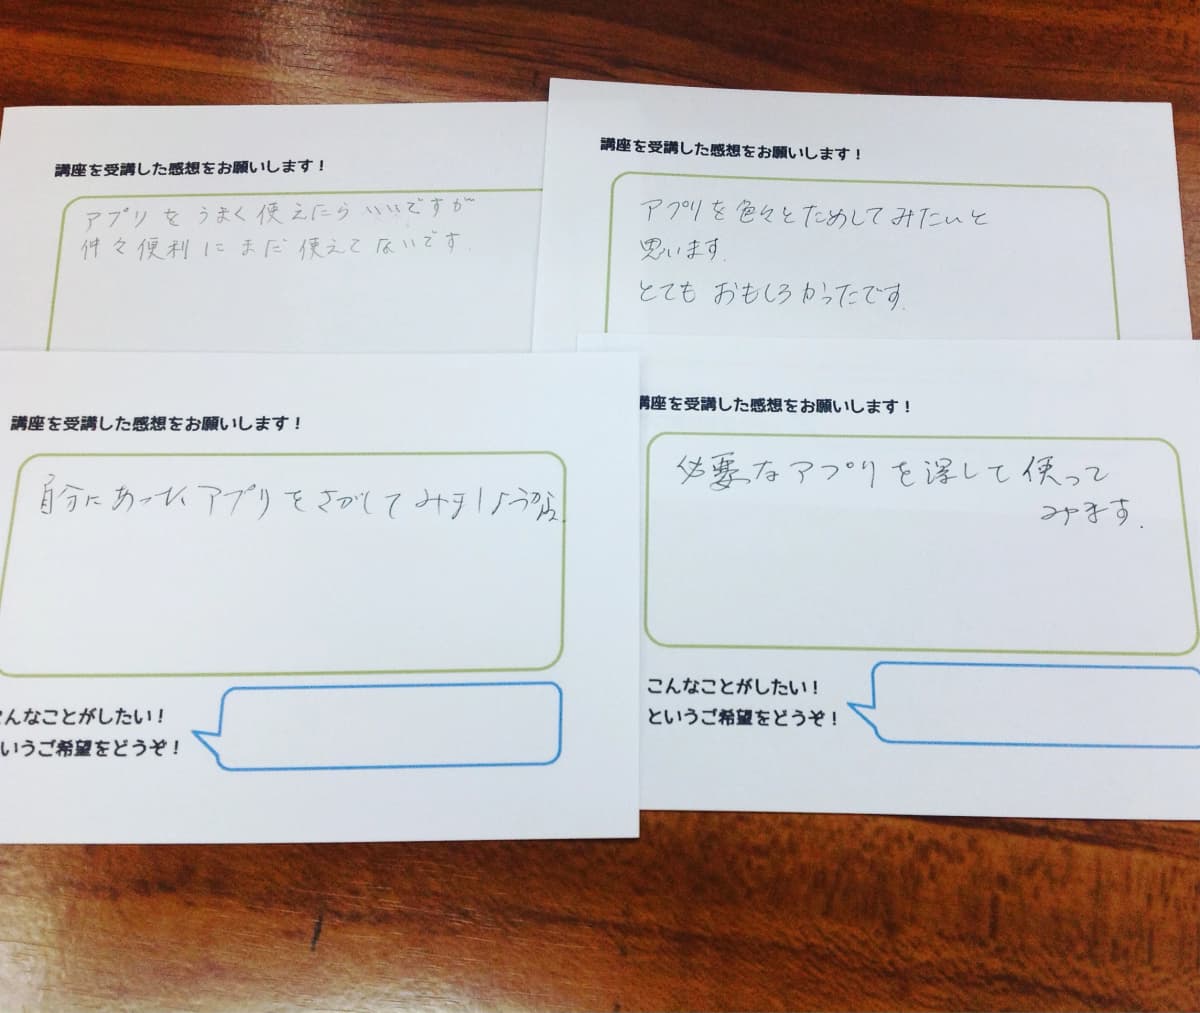 講座を受講した感想をお願いします！
アプリをうまく使えたらいいですが
件々便利にまだ使えてないです.
講座を受講した感想をお願いします！
アプリを色々とためしてみたいと
思います.
とてもおもしろかったです.
講座を受講した感想をお願いします！
自分にあった アプリをさがして
こんなことがしたい！
というご希望をどうぞ！
講座を受講した感想をお願いします！
必要なアプリを探して使って
みます.
こんなことがしたい！
というご希望をどうぞ！